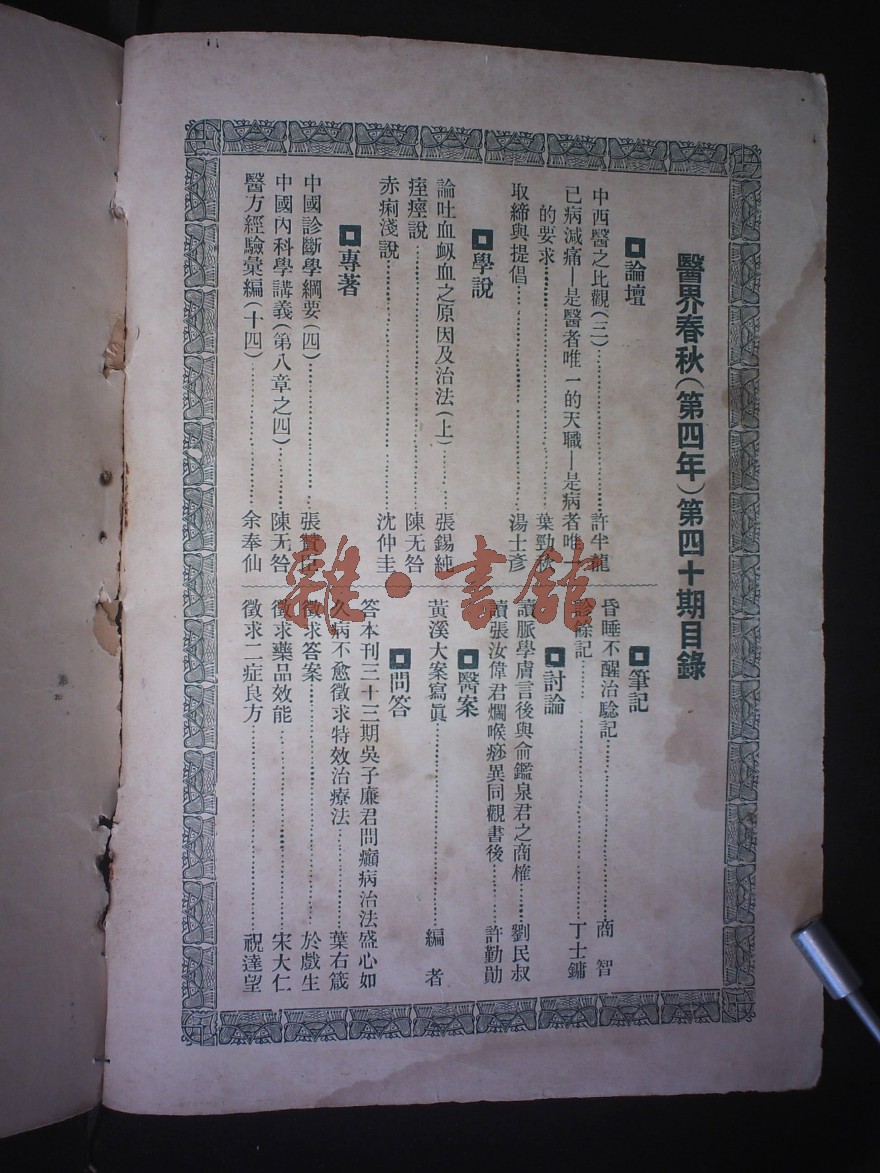 醫界春秋（第四年）第四十期目錄
論壇
中西醫之比觀（三）……許半龍
已病減痛—是醫者唯一的天職—是病者唯一
的要求……葉勁秋
取締與提倡……湯士彥
學說
論吐血衂血之原因及治法（上）……張錫純
痓痙說……陳无咎
赤痢淺說……沈仲圭
專著
中國診斷學綱要（四）……張贊臣
中國內科學講義（第八章之四）……陳无咎
醫方經驗彙編（十四）……余奉仙
筆記
昏睡不醒治騐記……商智
診餘記……丁士鏞
討論
讀脈學膚言後與俞鑑泉君之商榷……劉民叔
讀張汝偉君爛喉痧異同觀書後……許勤勛
醫案
黃溪大案寫眞……編者
問答
答本刊三十三期吳子廉君問癲病治法盛心如
久病不愈徵求特效治療法……葉右箴
徵求答案……於戲生
徵求藥品效能……宋大仁
徵求二症良方……祝達望
雜·書館